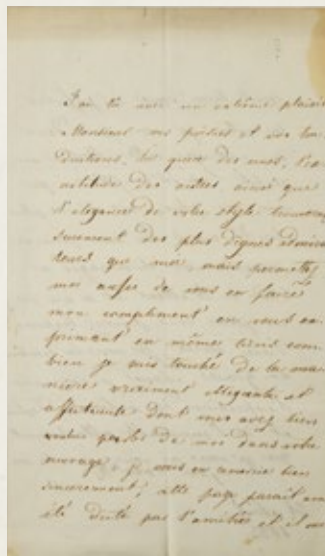 J'ai lu avec un extrême plaisir
Monsieur vos poésies et vos tra
ductions, la grace des unes, l'ex
actitude des autres ainsi que
l'elegance de votre style trouveront
surement des plus dignes admira
teurs que moi, mais permettez
moi aussi de vous en faire
mon compliment en vous ex
primant en même tems com
bien je suis touché de la ma
niere vraiment elegante et
affectueuse dont vous avez bien
voulu parler de moi dans votre
ouvrage, je vous en remercie bien
sincerement, cette page parait avoir
été dictée par l'amitié et il